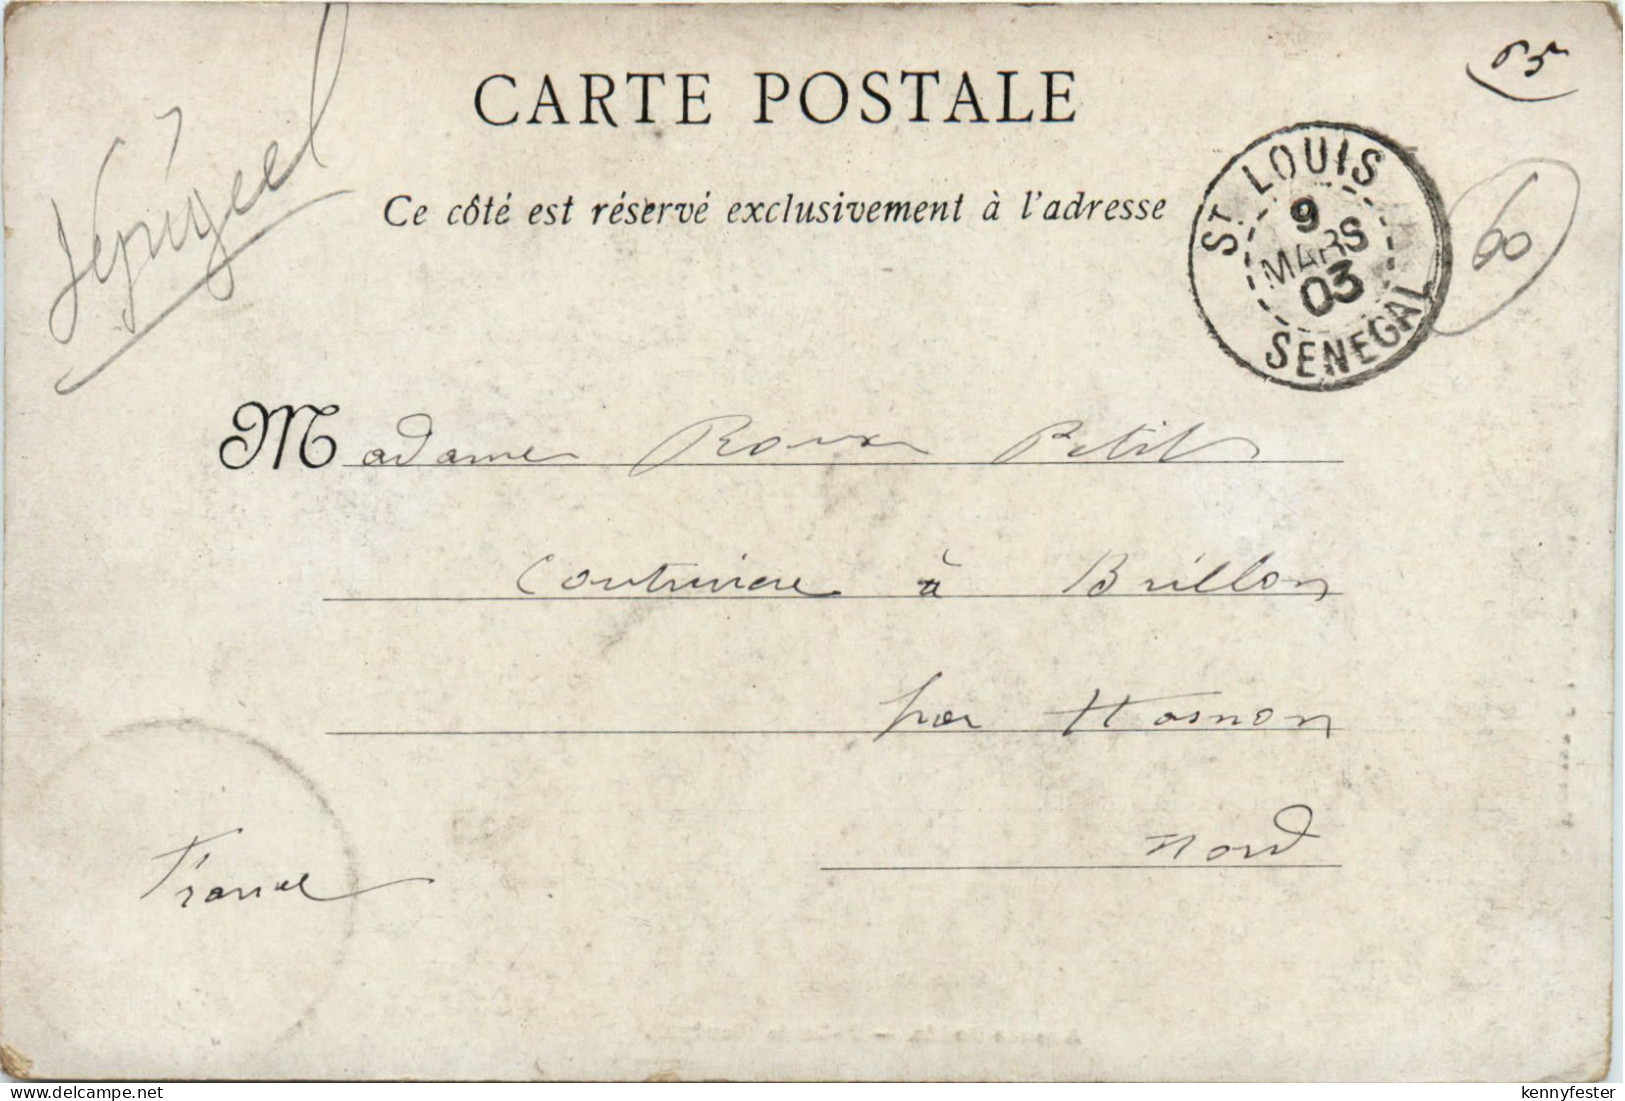 Sénégal
65
CARTE POSTALE
Ce côté est réservé exclusivement à l'adresse
ST LOUIS
9
MARS
03
SENEGAL
60
Madame Roux Petit
Couturière à Brillon
par Hasnon
Nord
France
kennyfester